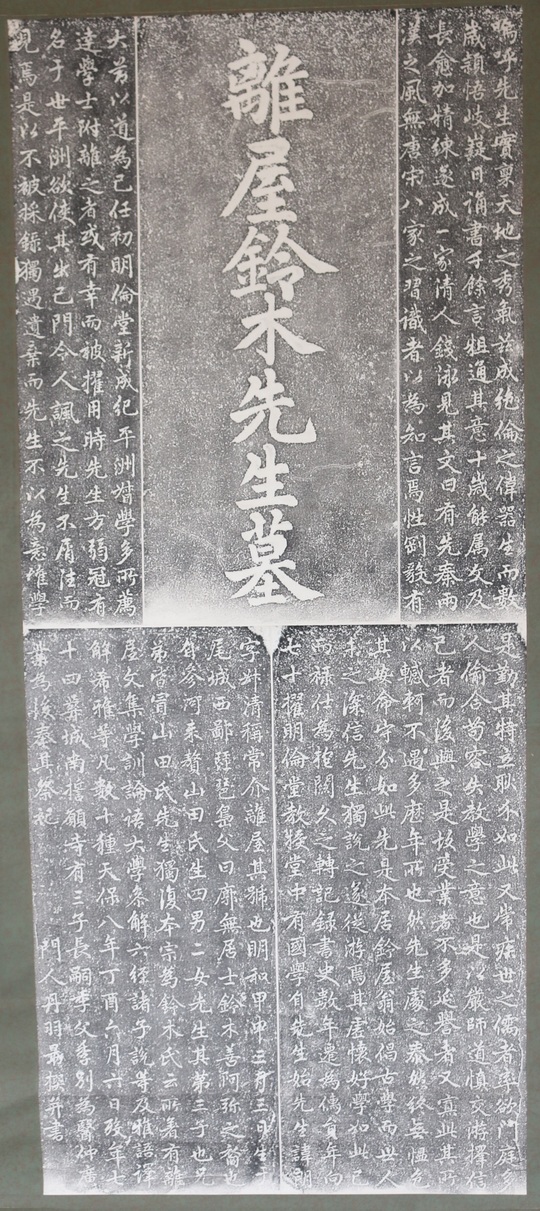 離屋鈴木先生墓
嗚呼先生實稟天地之秀氣玆成絶倫之偉器生而數
歳頴悟岐嶷日誦書千餘言粗通其意十歳能属文及
長愈加精練遂成一家清人錢泳見其文曰有先秦兩
漢之風無唐宋八家之習識者以為知言焉性剛毅有
大節以道為己任初明倫堂新成紀平洲督學多所薦
達學士附離之者或有幸而被擢用時先生方弱冠有
名于世平洲欲使其出己門令人諷之先生不屑往而
見焉是以不被採録獨遇遺棄而先生不以為意惟學
是勤其特立耿介如此又常疾世之儒者率欲門庭多
人偷合苟容失教學之意也是以嚴師道慎交游擇信
己者而後與之是故受業者不多延譽者又寡此其所
以轗軻不遇多歴年所也然先生處之泰然終無慍色
其安命守分如此先是本居鈴屋翁始倡古學而世人
未之深信先生獨説之遂從游焉其虚懐好學如此已
而禄仕為抱關久之轉記録書史數年遷為儒員年向
七十擢明倫堂教授堂中有國學自先生始先生諱朖
字叔清稱常介離屋其號也明和甲申三月三日生于
尾城西鄙琵琶島父曰廓無居士鈴木善阿弥之裔也
自參河來贅山田氏生四男二女先生其第三子也兄
弟皆冒山田氏先生獨復本宗為鈴木氏云所著有離
屋文集學訓論語大學參解六經諸子説等及雅語譯
解希雅等凡數十種天保八年丁酉六月六日歿年七
十四葬城南誓願寺有三子長嗣季父季別為醫仲廣
業為後奉其祭祀
門人丹羽勗撰并書